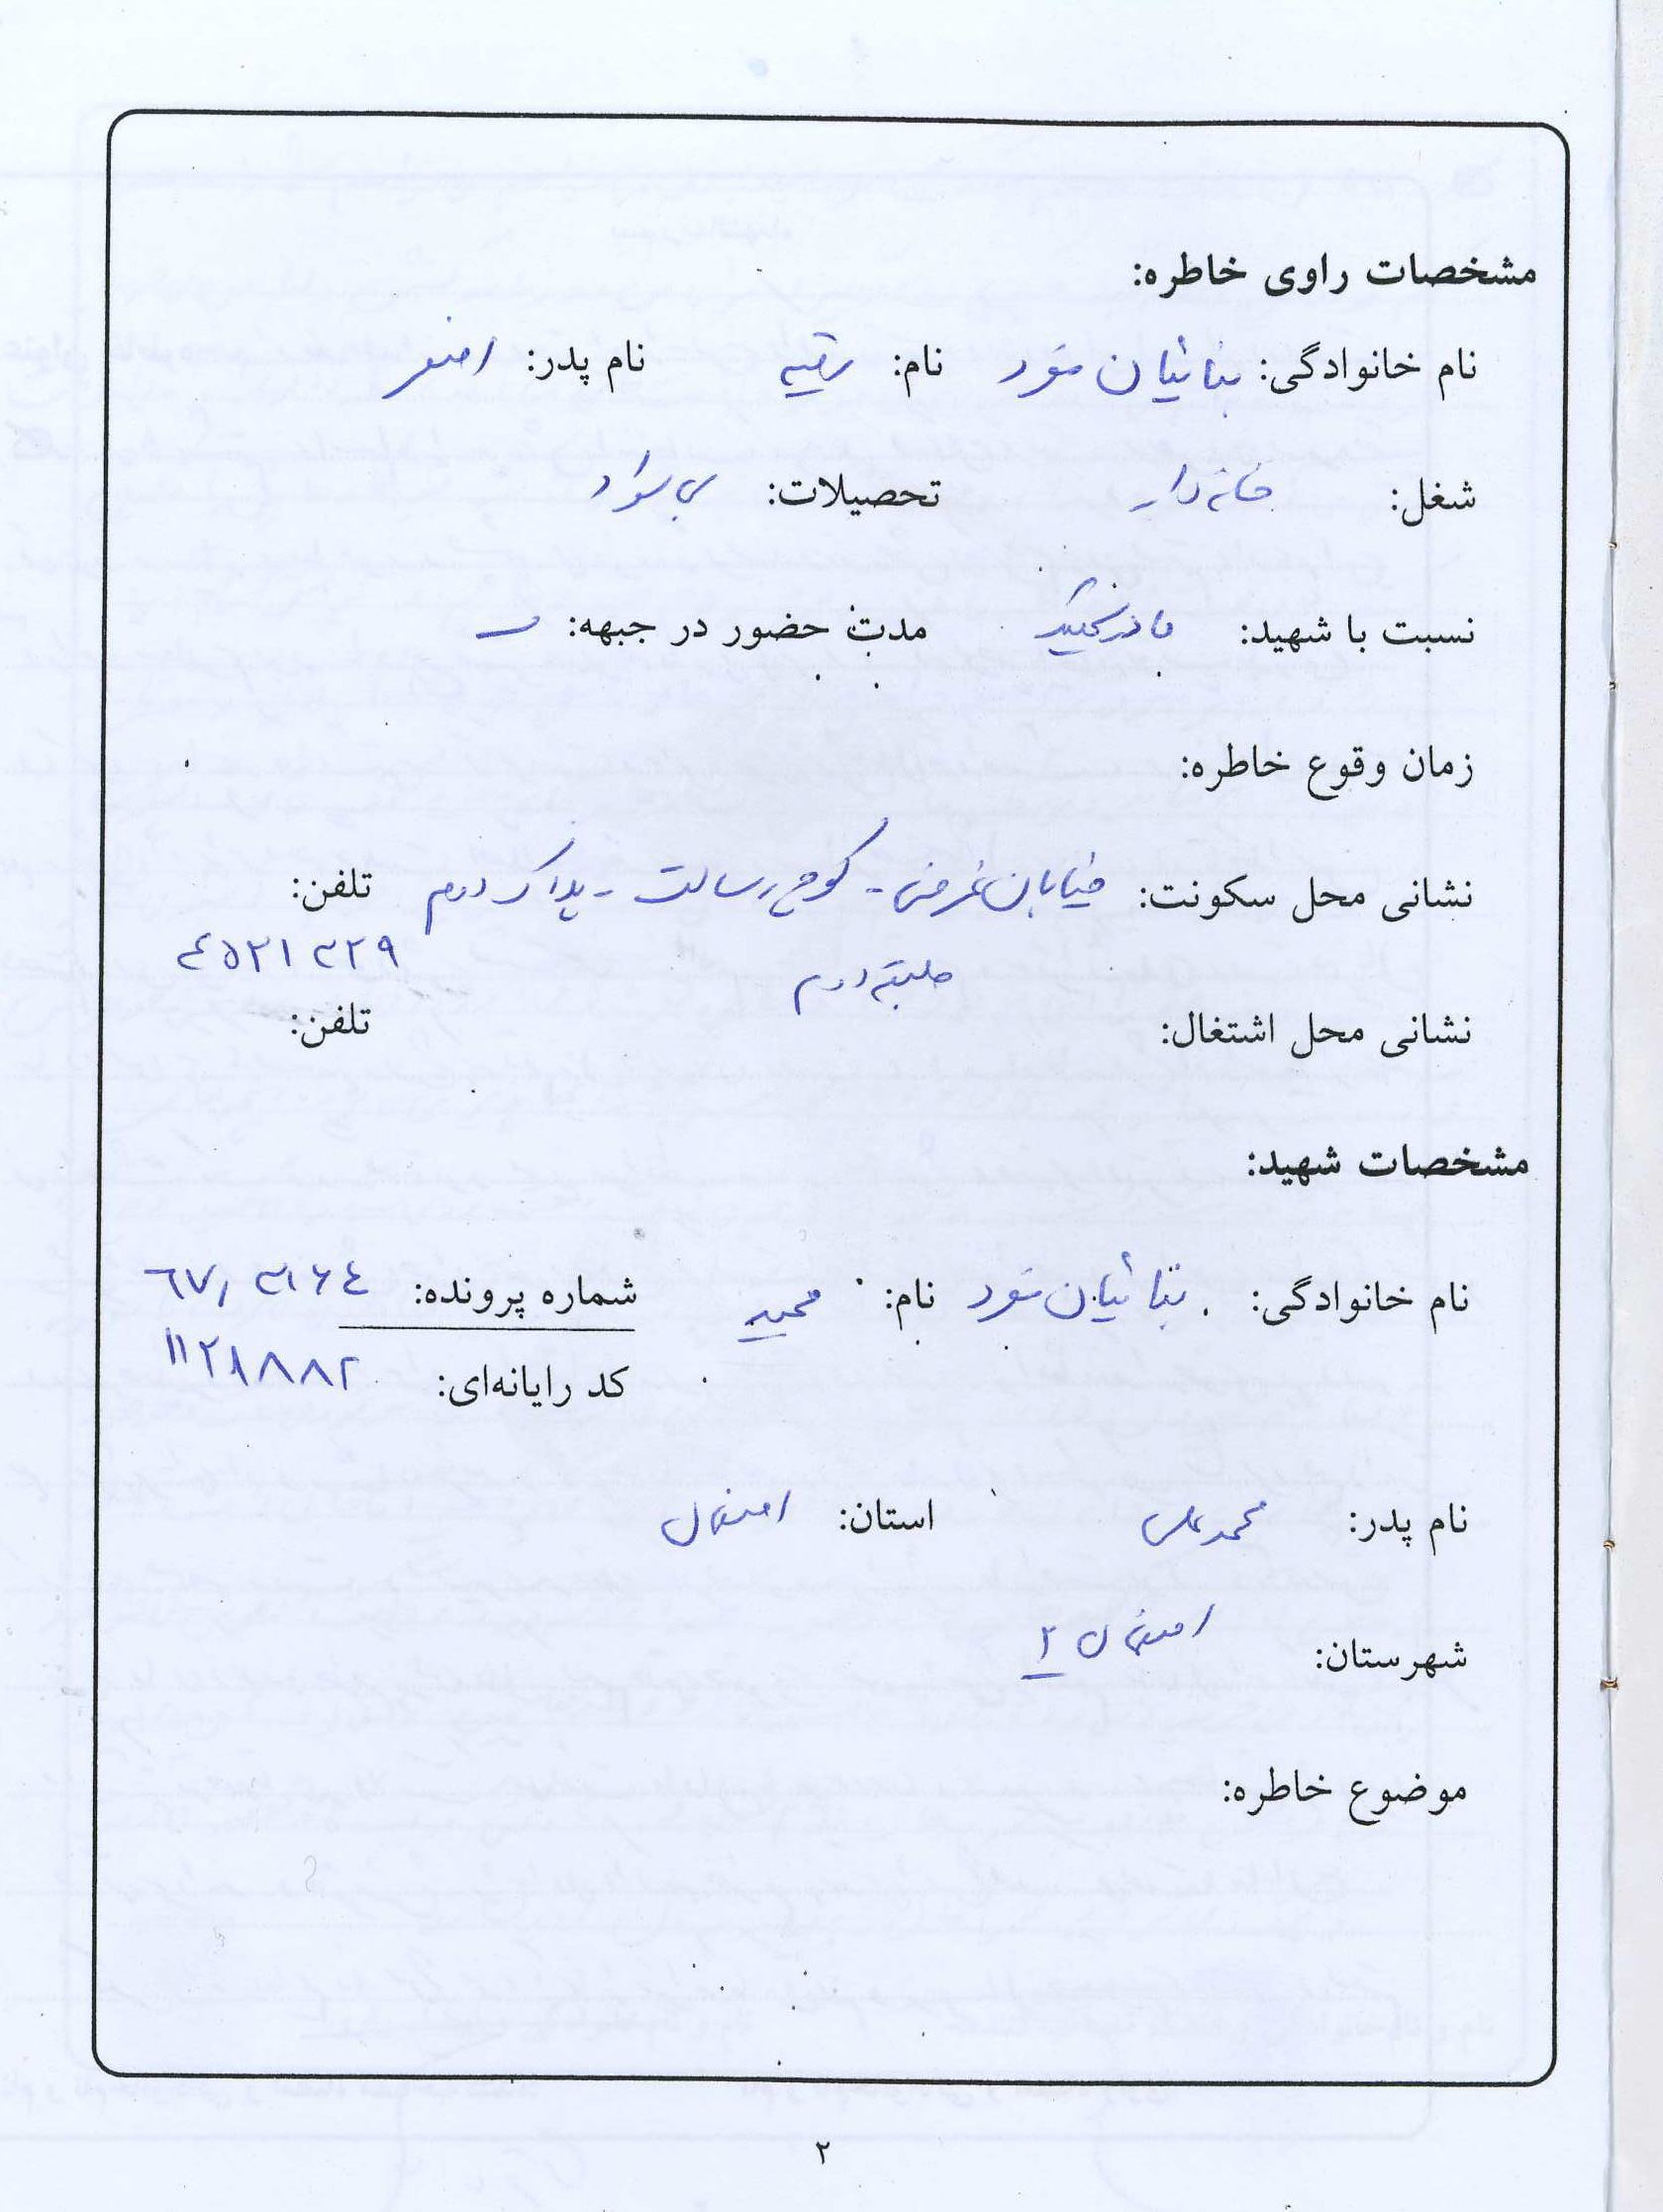 مشخصات راوی خاطره:
نام خانوادگی: بنائیان مفرد نام: رقیه نام پدر: اصغر
شغل: خانه‌دار تحصیلات: بی سواد
نسبت با شهید: مادر شهید مدت حضور در جبهه: -
زمان وقوع خاطره:
نشانی محل سکونت: خیابان غرضی - کوی رسالت - پلاک دوم تلفن:
طبقه دوم ۴۵۲۱۳۲۹
نشانی محل اشتغال: تلفن:
مشخصات شهید:
نام خانوادگی: بنائیان مفرد نام: مجید شماره پرونده: ۶۷/۳۱۶۴
کد رایانه‌ای: ۱۱۲۸۸۸۲
نام پدر: محمدعلی استان: اصفهان
شهرستان: اصفهان ۲
موضوع خاطره:
۲